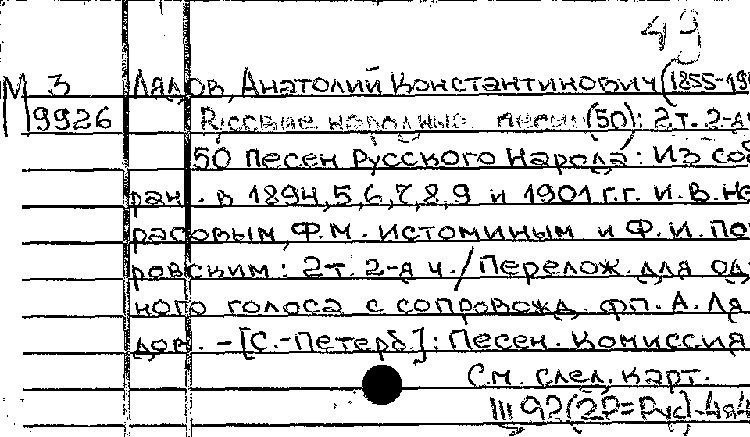 49
М 3 Лядов, Анатолий Константинович (1855-19
9926 Русские народные песни (50): 2т. 2-я
50 песен русского народа: Из соб
ран. в 1894,5,6,7,8,9 и 1901 г.г. И.В. Не
расовым, Ф.М. Истоминым и Ф.И. Пок
ровским: 2-т. 2-я ч./Перелож. для од
ного голоса с сопровожд. фп. А. Ля
дов. - [С.-Петерб.]: Песен. Комиссия
См. след. карт.
III 92(2Р=Рус)-4я4